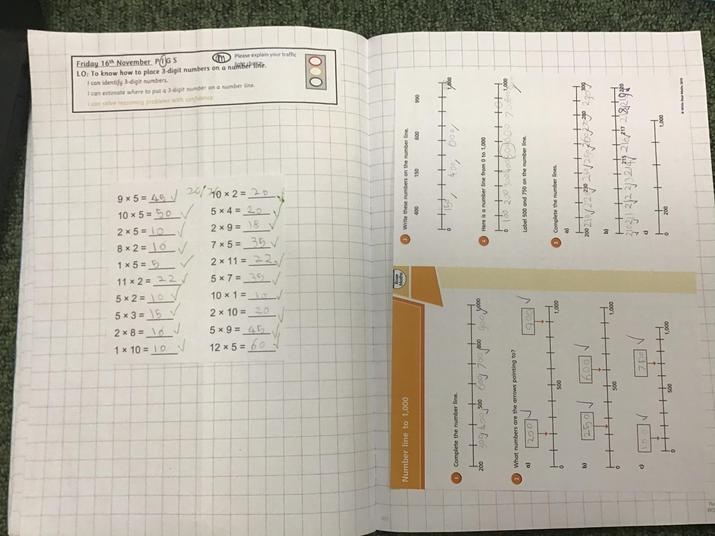 Friday 16th November PiGS
Please explain your traffic
L.O: To know how to place 3-digit numbers on a number line.
I can identify 3-digit numbers.
I can estimate where to put a 3-digit number on a number line.
I can solve reasoning problems with confidence.
20/20
9 x 5 = 45
10 x 5 = 50
2 x 5 = 10
8 x 2 = 16
1 x 5 = 5
11 x 2 = 22
5 x 2 = 10
5 x 3 = 15
2 x 8 = 16
1 x 10 = 10
10 x 2 = 20
5 x 4 = 20
2 x 9 = 18
7 x 5 = 35
2 x 11 = 22
5 x 7 = 35
10 x 1 = 10
2 x 10 = 20
5 x 9 = 45
12 x 5 = 60
Number line to 1,000
1 Complete the number line.
200 300 400 500 600 700 800 900 1,000
2 What numbers are the arrows pointing to?
a) 200 900
0 500 1,000
b) 250 600
0 500 1,000
c) 100 750
0 500 1,000
3 Write these numbers on the number line.
400 150 600 990
0 1,000
4 Here is a number line from 0 to 1,000
0 1,000
Label 500 and 750 on the number line.
5 Complete the number lines.
a)
200 230 280 300
b)
215 217 220
c)
0 200 1,000